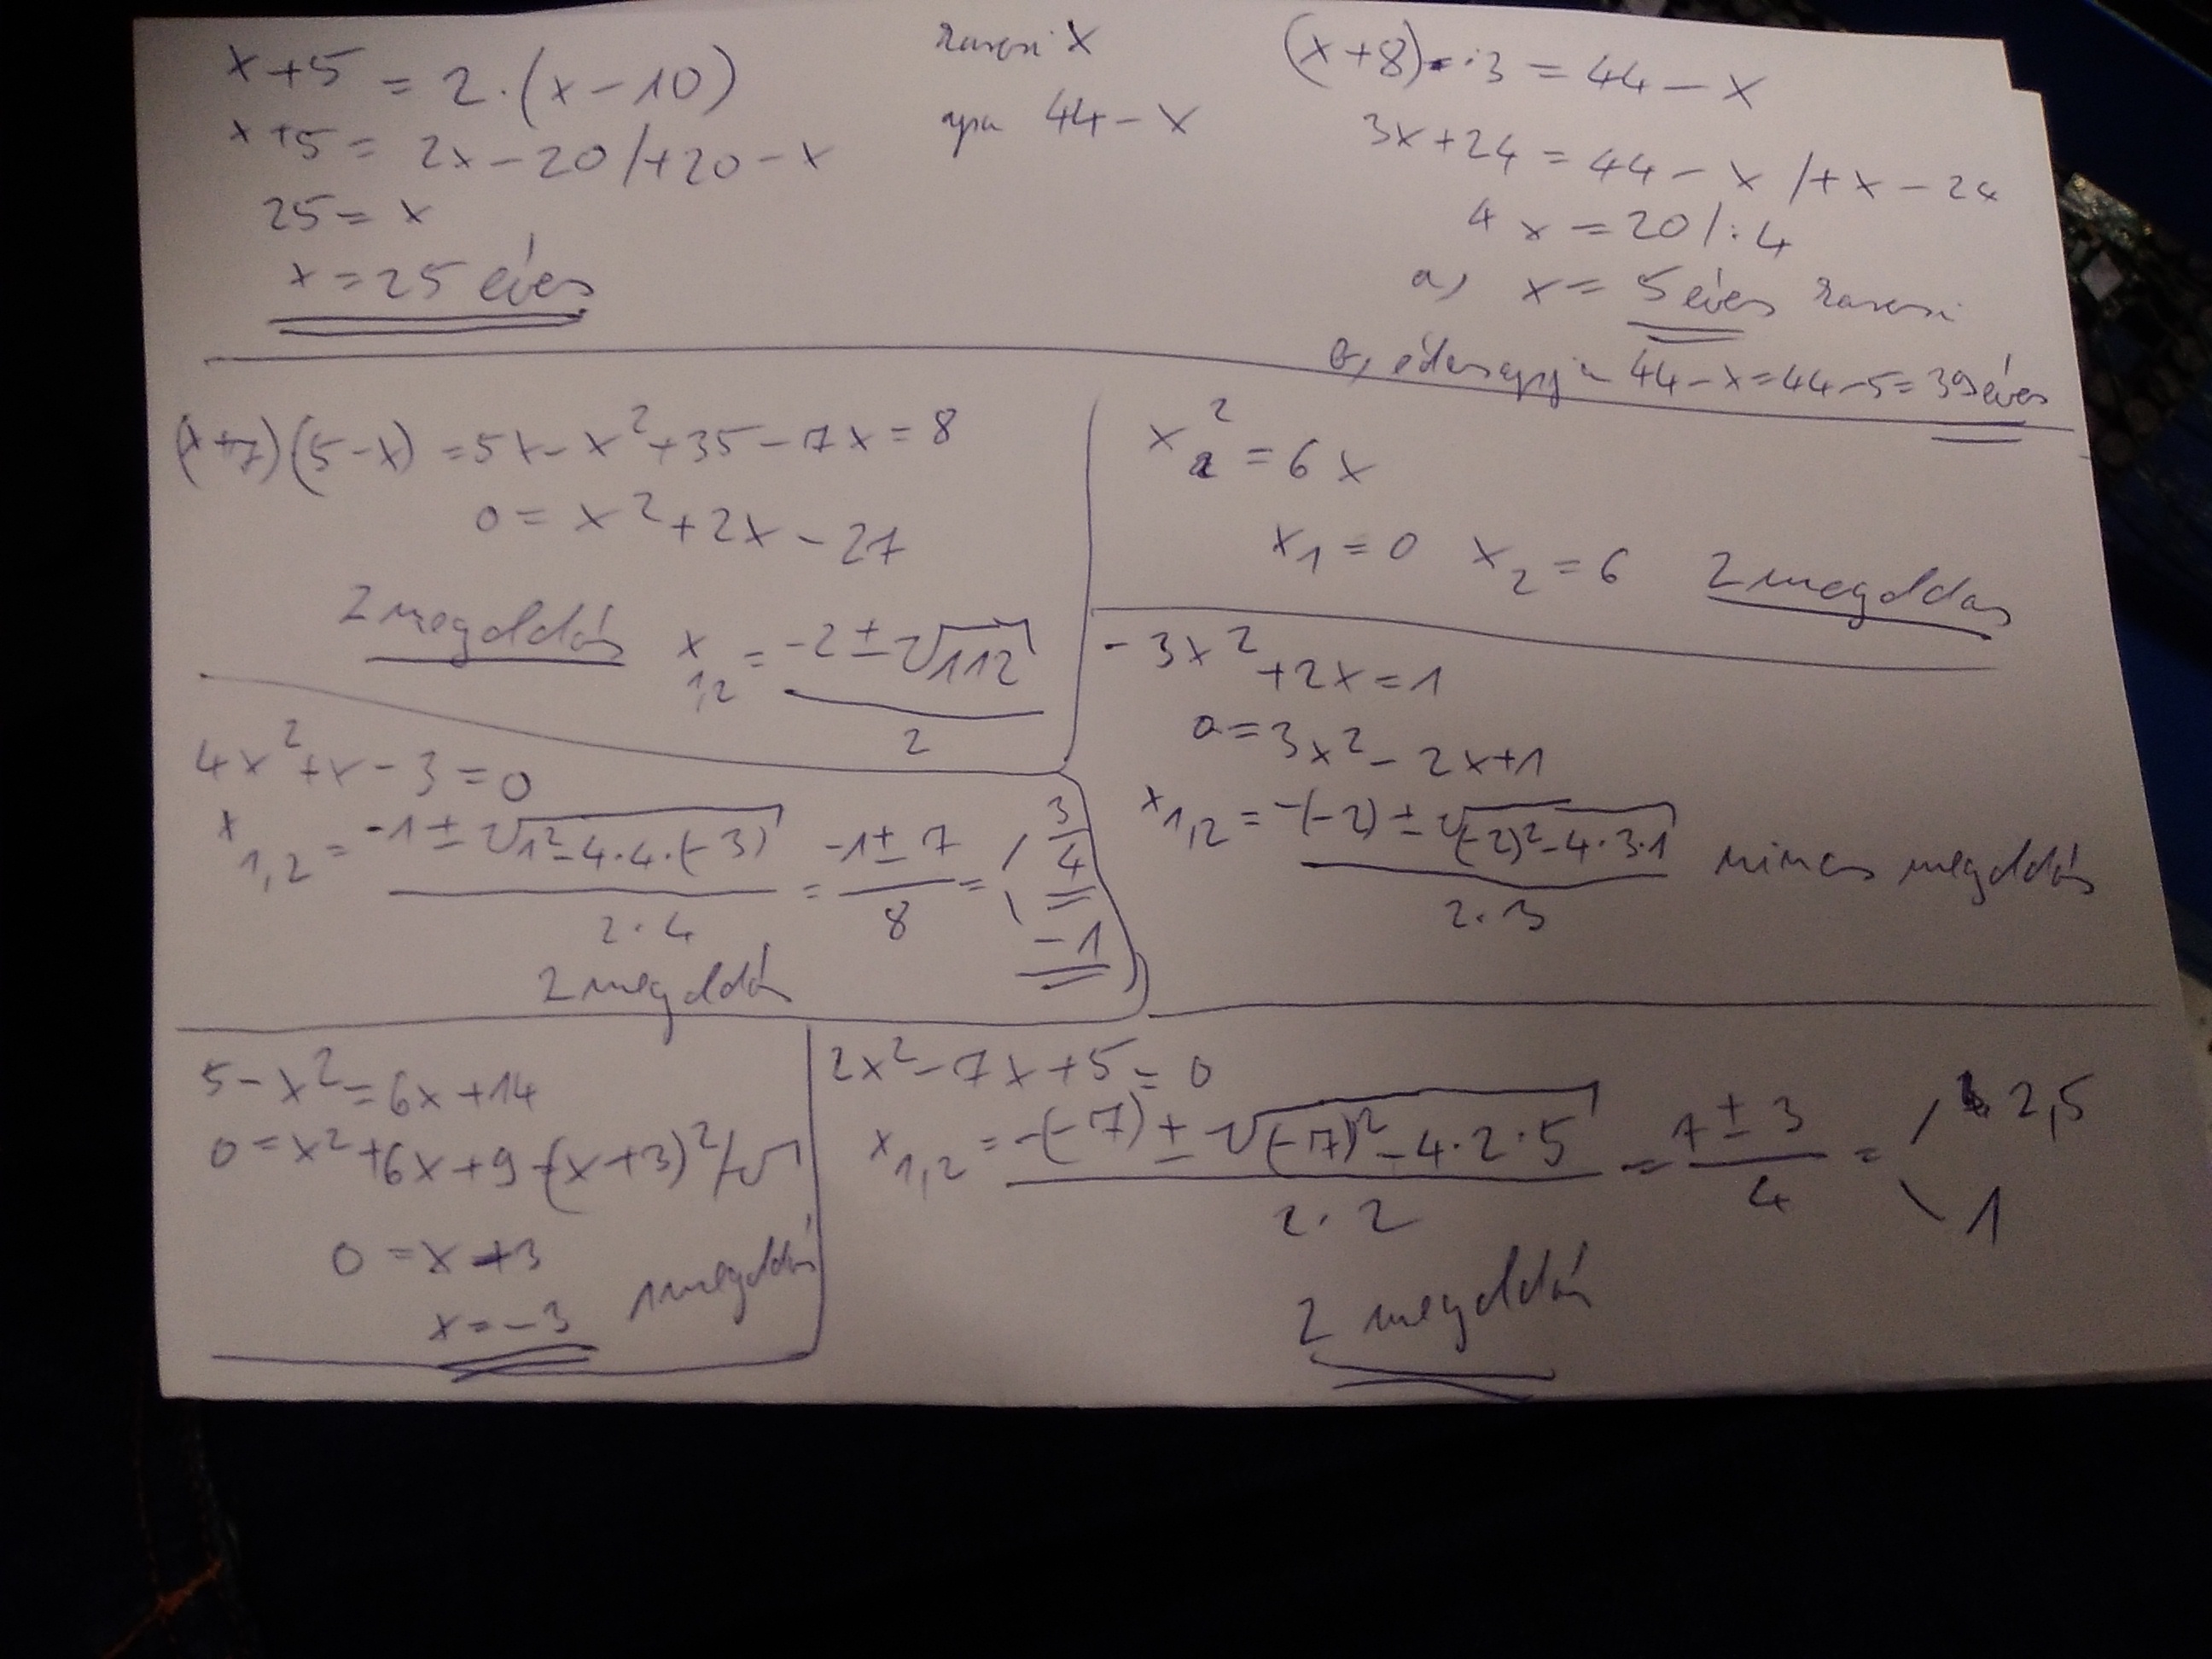 x+5 = 2·(x-10)
x+5 = 2x-20 /+20-x
25 = x
x = 25 éves
x
apa 44-x
(x+8)·3 = 44-x
3x+24 = 44-x /+x-24
4x = 20 /:4
a, x = 5 éves
b, édesapja 44-x=44-5=39 éves
(x+7)(5-x) = 5x-x²+35-7x=8
0 = x²+2x-27
2 megoldás x₁,₂ = (-2±√112)/2
x² = 6x
x₁ = 0 x₂ = 6 2 megoldás
-3x²+2x=1
0=3x²-2x+1
x₁,₂ = (-(-2)±√((-2)²-4·3·1))/(2·3) nincs megoldás
4x²+x-3=0
x₁,₂ = (-1±√(1²-4·4·(-3)))/(2·4) = (-1±7)/8 = 3/4
-1
2 megoldás
5-x²=6x+14
0=x²+6x+9=(x+3)² /√
0=x+3
x=-3 1 megoldás
2x²-7x+5=0
x₁,₂ = (-(-7)±√((-7)²-4·2·5))/(2·2) = (7±3)/4 = 2,5
1
2 megoldás